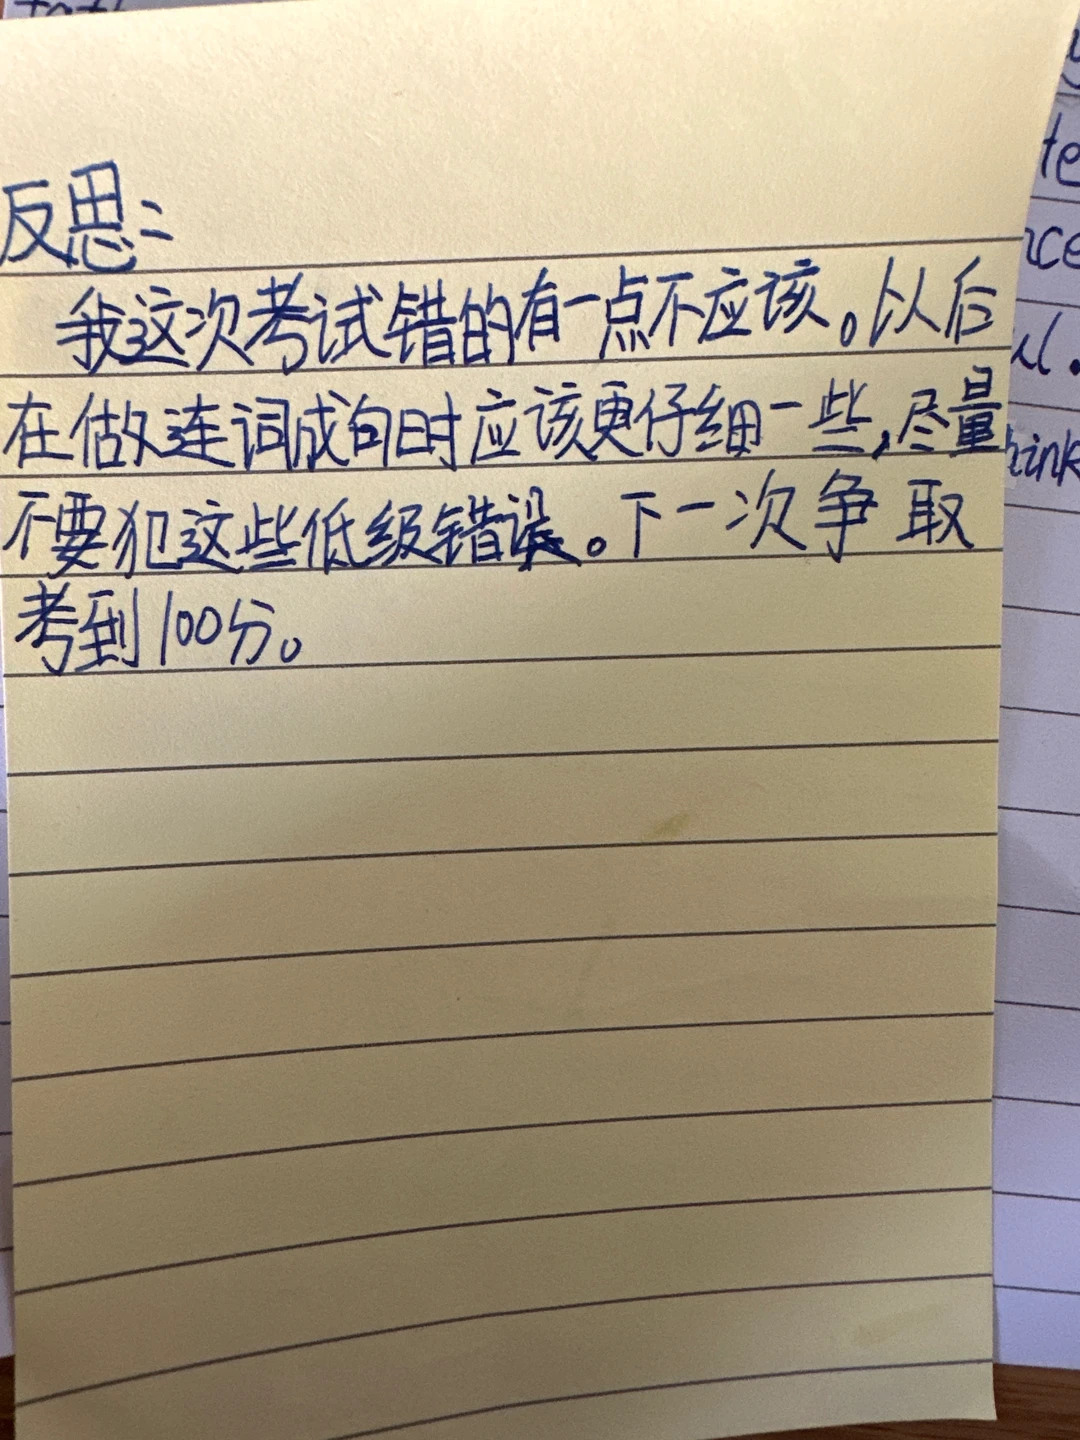 反思：
我这次考试错的有一点不应该。以后
在做连词成句时应该更仔细一些，尽量
不要犯这些低级错误。下一次争取
考到100分。